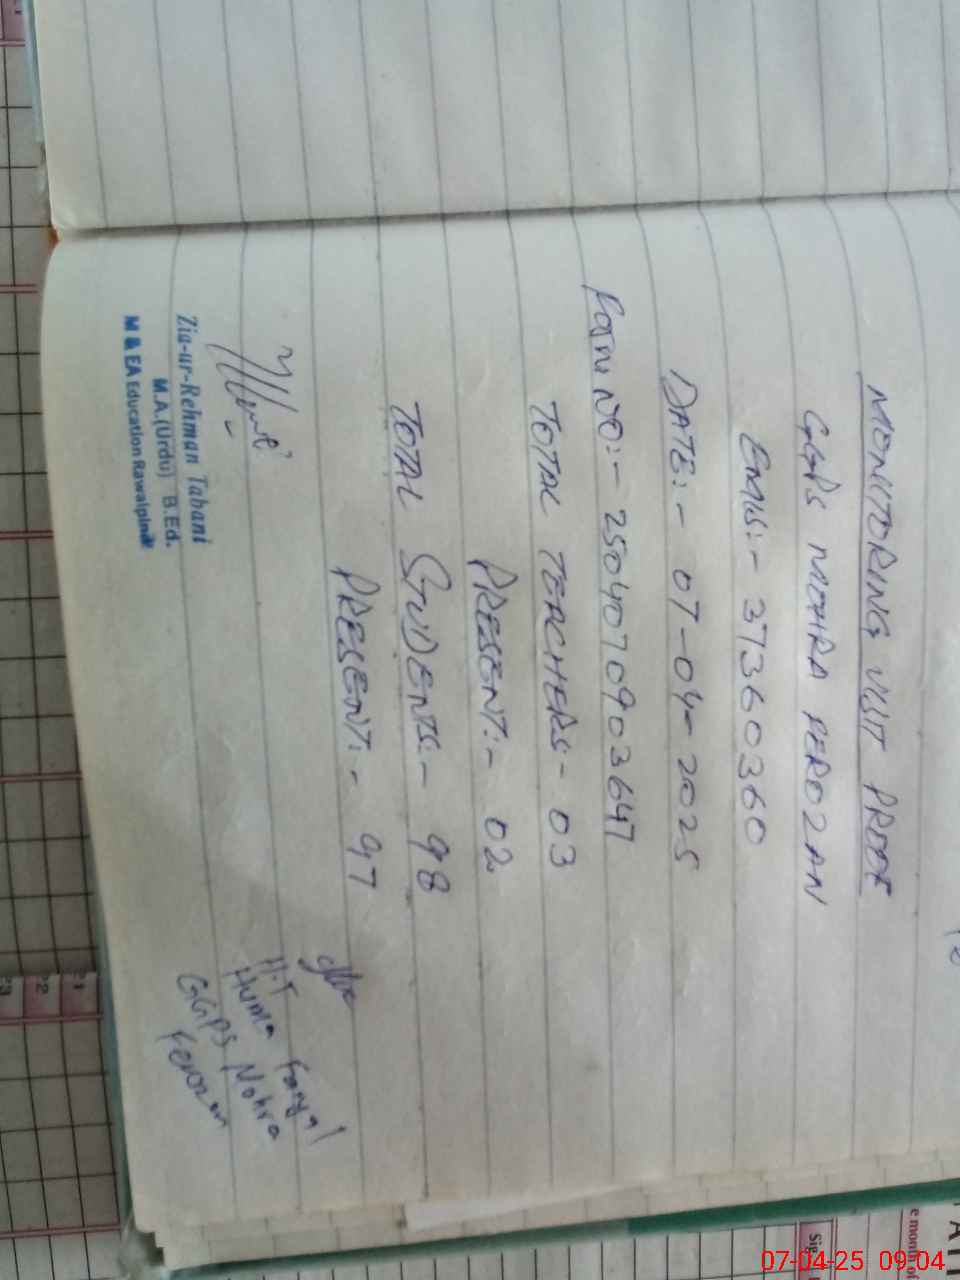 MONITORING VISIT PROOF
GGPS MOHRA PEROZAN
EMIS:- 37360360
DATE:- 07-04-2025
PSTM NO:- 2504070903647
TOTAL TEACHERS- 03
PRESENT:- 02
TOTAL STUDENTS:- 98
PRESENT:- 97
Zia-ur-Rehman Tabani
M.A.(Urdu) B.Ed.
M & EA Education Rawalpindi
H.T
Huma
GGPS Mohra
Ferozan
e month of
Sig
21
22
23
07-04-25 09:04